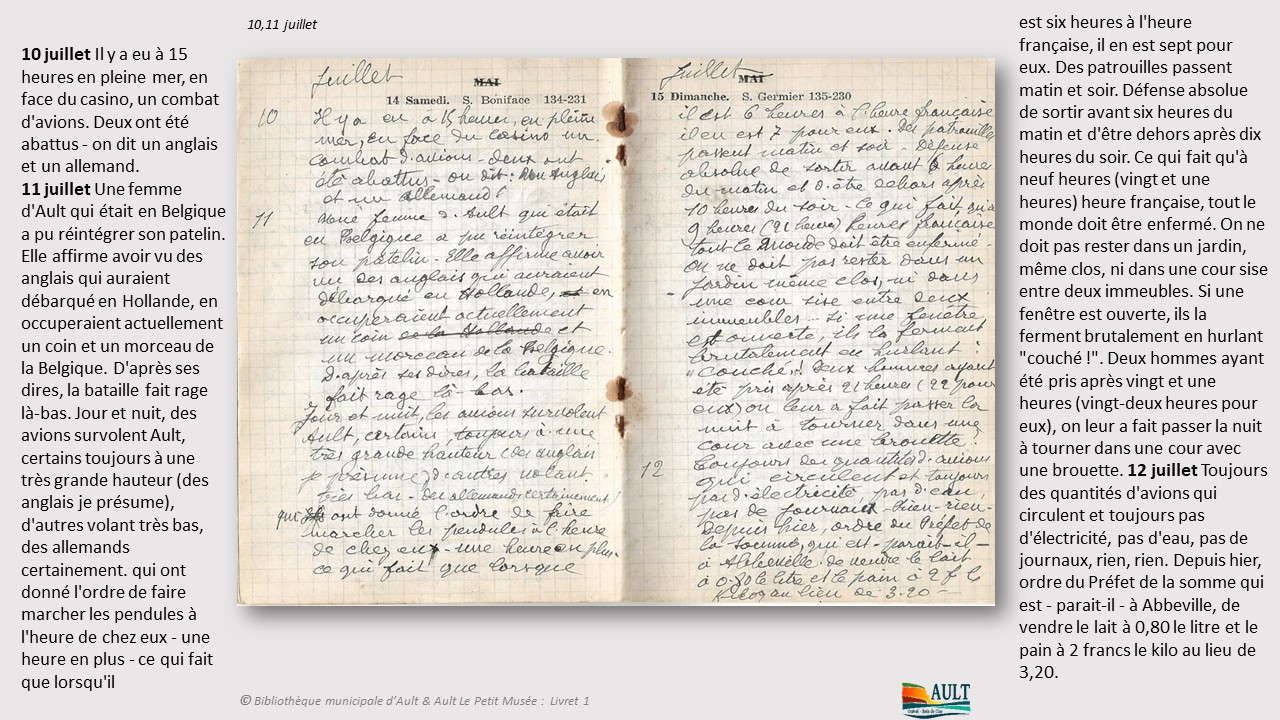 10,11 juillet
10 juillet Il y a eu à 15
heures en pleine mer, en
face du casino, un combat
d'avions. Deux ont été
abattus - on dit un anglais
et un allemand.
11 juillet Une femme
d'Ault qui était en Belgique
a pu réintégrer son patelin.
Elle affirme avoir vu des
anglais qui auraient
débarqué en Hollande, en
occuperaient actuellement
un coin et un morceau de
la Belgique. D'après ses
dires, la bataille fait rage
là-bas. Jour et nuit, des
avions survolent Ault,
certains toujours à une
très grande hauteur (des
anglais je présume),
d'autres volant très bas,
des allemands
certainement. qui ont
donné l'ordre de faire
marcher les pendules à
l'heure de chez eux - une
heure en plus - ce qui fait
que lorsqu'il
juillet
MAI
14 Samedi. S. Boniface 134-231
10 Il y a eu à 15 heures, en pleine
mer, en face du casino un
combat d'avions - deux ont
été abattus - on dit : un anglais
et un allemand !
11 Une femme d'Ault qui était
en Belgique a pu réintégrer
son patelin - Elle affirme avoir
vu des anglais qui auraient
débarqué en Hollande, et en
occuperaient actuellement
un coin de la Hollande et
un morceau de la Belgique.
D'après ses dires, la bataille
fait rage là-bas.
Jour et nuit, les avions survolent
Ault, certains, toujours à une
très grande hauteur (des anglais
je présume) d'autres volant
très bas - des allemands certainement !
qui ont donné l'ordre de faire
marcher les pendules à l'heure
de chez eux - une heure en plus -
ce qui fait que lorsque
juillet
MAI
15 Dimanche. S. Germier 135-230
il est 6 heures à l'heure française
il en est 7 pour eux. Des patrouilles
passent matin et soir - Défense
absolue de sortir avant 6 heures
du matin et d'être dehors après
10 heures du soir - ce qui fait qu'à
9 heures (21 heures) heures française
tout le monde doit être enfermé -
On ne doit pas rester dans un
jardin même clos, ni dans
une cour sise entre deux
immeubles - Si une fenêtre
est ouverte, ils la ferment
brutalement en hurlant :
"couché"! Deux hommes ayant
été pris après 21 heures (22 pour
eux) on leur a fait passer la
nuit à tourner dans une
cour avec une brouette !
12 Toujours des quantités d'avions
qui circulent et toujours
pas d'électricité, pas d'eau,
pas de journaux - rien - rien -
Depuis hier, ordre du Préfet de
la Somme, qui est - parait-il -
à Abbeville - de vendre le lait
à 0-80 le litre et le pain à 2 f le
kilog au lieu de 3-20 -
est six heures à l'heure
française, il en est sept pour
eux. Des patrouilles passent
matin et soir. Défense absolue
de sortir avant six heures du
matin et d'être dehors après dix
heures du soir. Ce qui fait qu'à
neuf heures (vingt et une
heures) heure française, tout le
monde doit être enfermé. On ne
doit pas rester dans un jardin,
même clos, ni dans une cour sise
entre deux immeubles. Si une
fenêtre est ouverte, ils la
ferment brutalement en hurlant
"couché !". Deux hommes ayant
été pris après vingt et une
heures (vingt-deux heures pour
eux), on leur a fait passer la nuit
à tourner dans une cour avec
une brouette. 12 juillet Toujours
des quantités d'avions qui
circulent et toujours pas
d'électricité, pas d'eau, pas de
journaux, rien, rien. Depuis hier,
ordre du Préfet de la somme qui
est - parait-il - à Abbeville, de
vendre le lait à 0,80 le litre et le
pain à 2 francs le kilo au lieu de
3,20.
© Bibliothèque municipale d'Ault & Ault Le Petit Musée : Livret 1
AULT